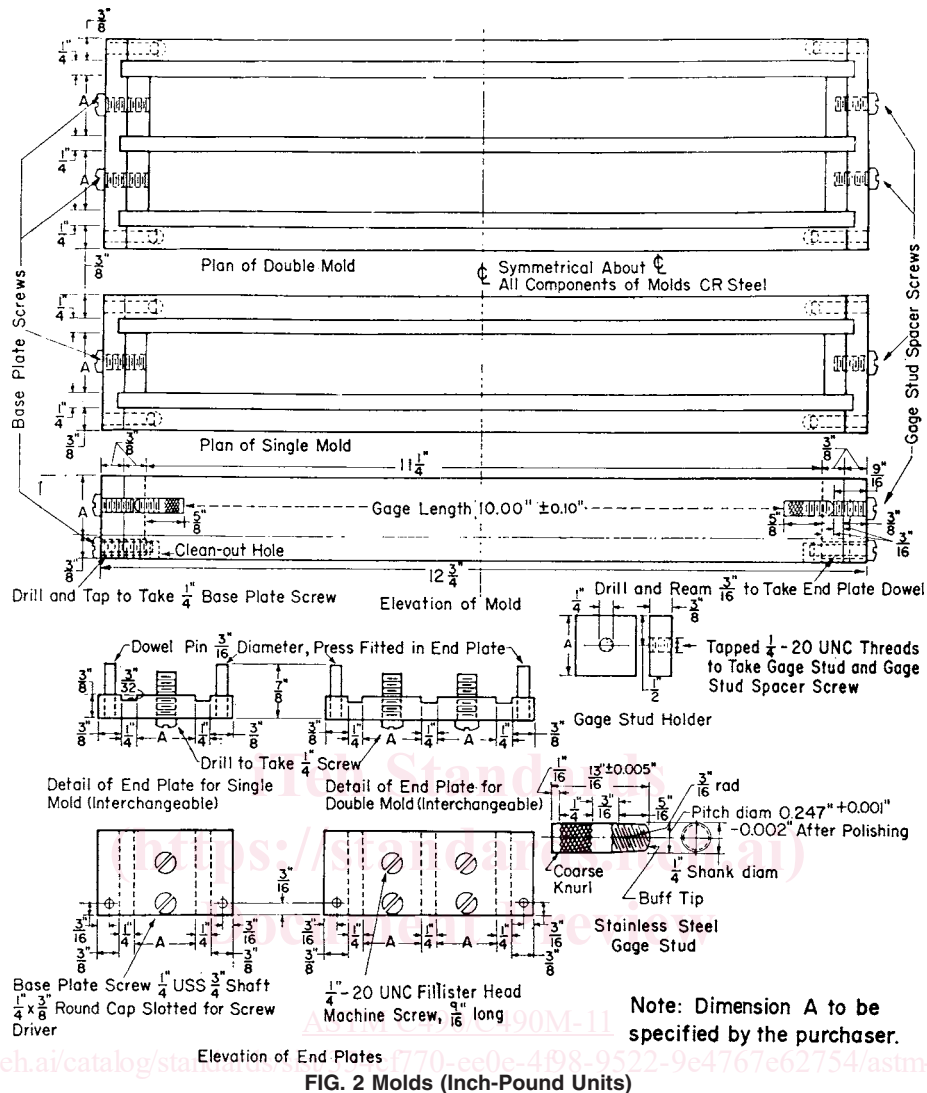 3/8"
1/4"
A
1/4"
A
1/4"
3/8"
Base Plate Screws
Gage Stud Spacer Screws
Plan of Double Mold
℄ Symmetrical About ℄
All Components of Molds CR Steel
1/4"
A
1/4"
3/8"
Plan of Single Mold
3/8"
11 1/4"
3/8"
9/16"
A
Gage Length 10.00" ±0.10"
5/8"
5/8"
3/8"
3/16"
3/8"
Clean-out Hole
12 3/4"
Drill and Tap to Take 1/4" Base Plate Screw
Elevation of Mold
Drill and Ream 3/16" to Take End Plate Dowel
1/4"
3/8"
A
1/2"
Tapped 1/4"-20 UNC Threads
to Take Gage Stud and Gage
Stud Spacer Screw
Gage Stud Holder
Dowel Pin 3/16" Diameter, Press Fitted in End Plate
3/8"
3/32"
7/8"
3/8" 1/4" A 1/4" 3/8"
3/8" 1/4" A 1/4" A 1/4" 3/8"
Drill to Take 1/4" Screw
Detail of End Plate for Single
Mold (Interchangeable)
Detail of End Plate for
Double Mold (Interchangeable)
1/16"
13/16" ±0.005"
3/16" rad
1/4" 3/16" 5/16"
Pitch diam 0.247" +0.001"
-0.002" After Polishing
Coarse
Knurl
1/4" Shank diam
Buff Tip
Stainless Steel
Gage Stud
3/16"
3/16" 1/4" A 1/4" 3/16"
3/8" 3/8"
3/16" 1/4" A 1/4" A 1/4" 3/16"
3/8" 3/8"
Base Plate Screw 1/4" USS 3/4" Shaft
1/4" x 3/8" Round Cap Slotted for Screw
Driver
1/4"-20 UNC Fillister Head
Machine Screw, 9/16" long
Note: Dimension A to be
specified by the purchaser.
Elevation of End Plates
iTeh Standards
(https://standards.iteh.ai)
Document Preview
ASTM C490/C490M-11
FIG. 2 Molds (Inch-Pound Units)